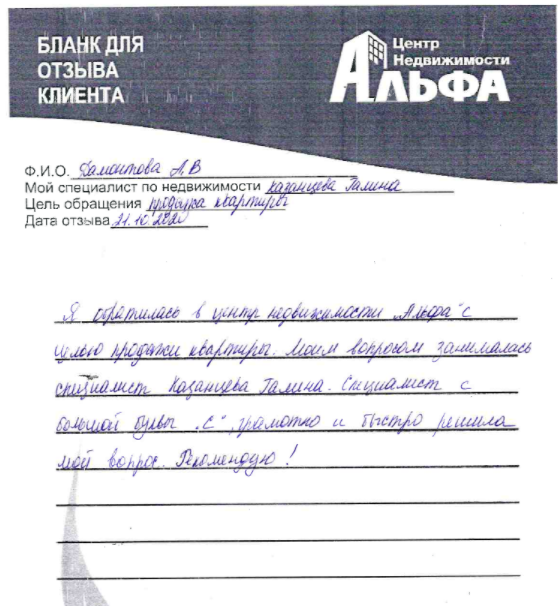 БЛАНК ДЛЯ
ОТЗЫВА
КЛИЕНТА
Центр
Недвижимости
АЛЬФА
Ф.И.О. Дамонтова А.В
Мой специалист по недвижимости Казанцева Галина
Цель обращения продажа квартиры
Дата отзыва 21.10.2020
Я обратилась в центр недвижимости „Альфа" с
целью продажи квартиры. Моим вопросом занималась
специалист Казанцева Галина. Специалист с
большой буквы „С", грамотно и быстро решила
мой вопрос. Рекомендую!